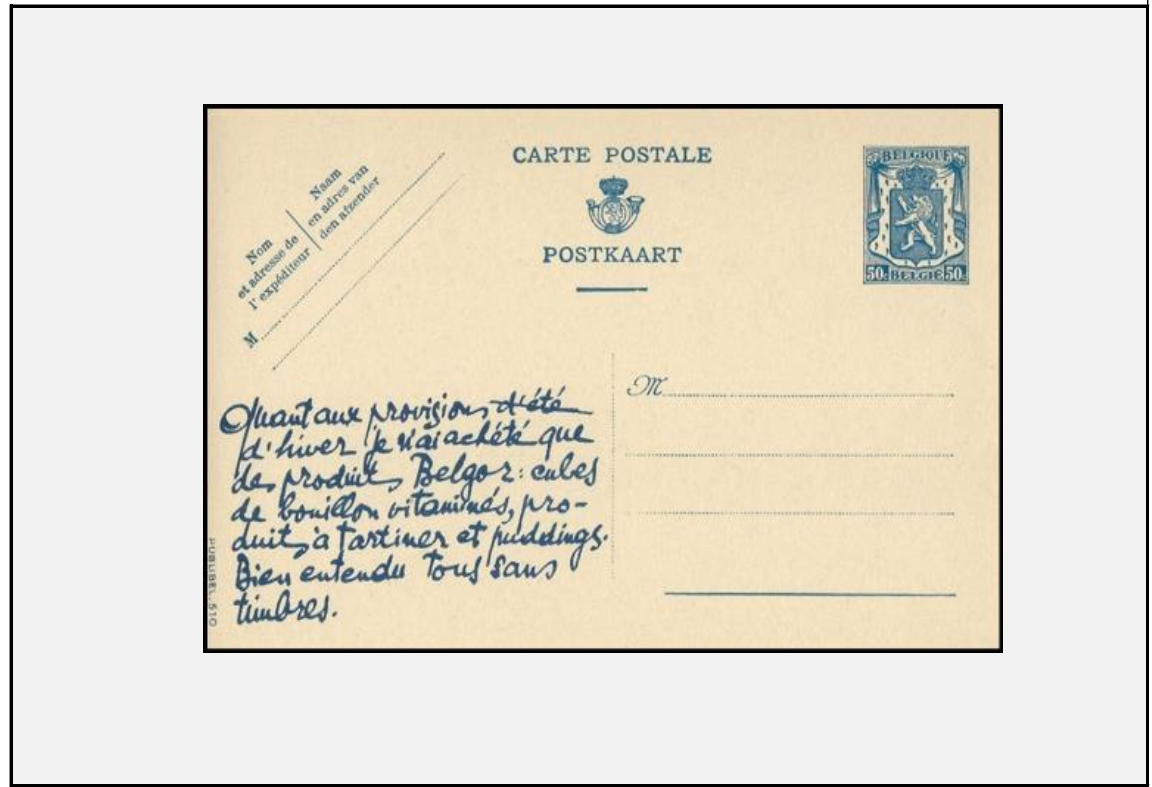 CARTE POSTALE
POSTKAART
BELGIQUE
50c BELGIË 50c
Nom
et adresse de
l'expéditeur
Naam
en adres van
den afzender
M
Quant aux provisions d'été
d'hiver je n'ai achété que
des produits Belgor: cubes
de bouillon vitaminés, pro-
duits à tartiner et puddings.
Bien entendu tous sans
timbres.
M
PUBLIBEL. 510